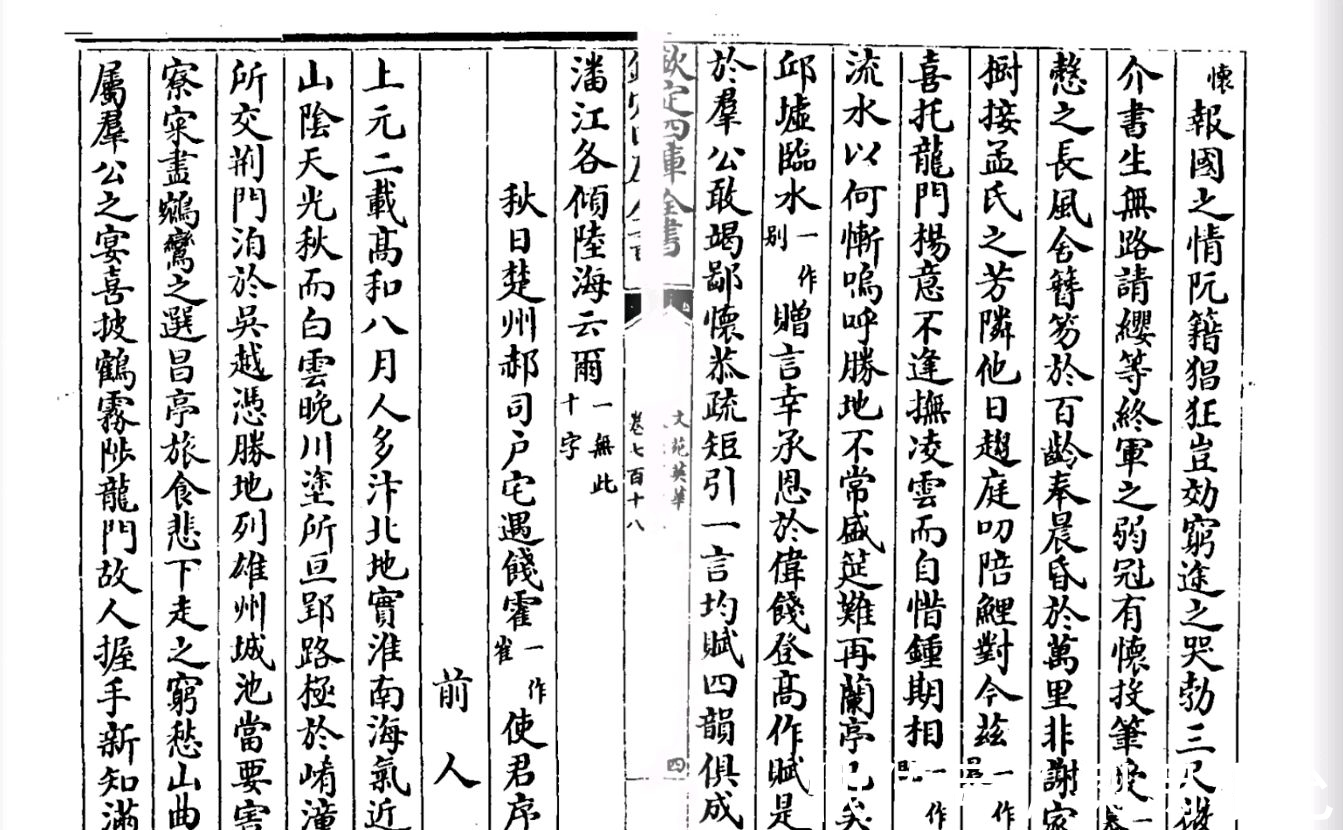 懷報國之情阮籍猖狂豈効窮途之哭勃三尺微
介書生無路請纓等終軍之弱冠有懷投筆愛一
慤之長風舍簪笏於百齡奉晨昏於萬里非謝家
樹接孟氏之芳隣他日趨庭叨陪鯉對今兹一作
喜托龍門楊意不逢撫凌雲而自惜鍾期相一作
流水以何慚嗚呼勝地不常盛筵難再蘭亭已矣
邱墟臨水一作别贈言幸承恩於偉餞登高作賦是
於羣公敢竭鄙懷恭疏短引一言均賦四韻俱成
欽定四庫全書
文苑英華
卷七百十八
四
潘江各傾陸海云爾一無此十字
秋日楚州郝司户宅遇餞霍一作崔使君序
前人
上元二載高和八月人多汴北地實淮南海氣近
山陰天光秋而白雲晚川塗所亘郢路極於崤潼
所交荆門泊於吳越憑勝地列雄州城池當要害
寮寀盡鵷鸞之選昌亭旅食悲下走之窮愁山曲
屬羣公之宴喜披鶴霧陟龍門故人握手新知滿